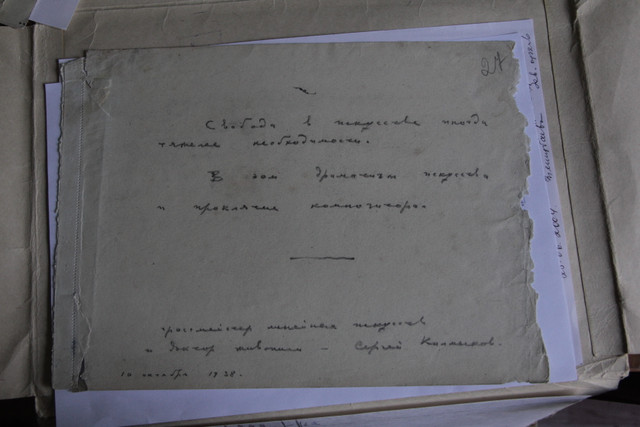 27
Свобода в искусстве иногда
тяжелее необходимости.
В этом искусства
и проклятие композитора.
гроссмейстер линейных искусств
и доктор живописи – Сергей Калмыков.
10 октября 1938.